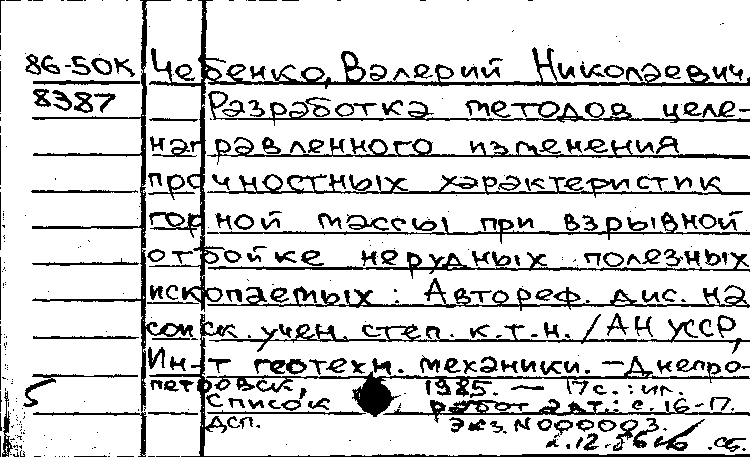 86-50К Чебенко, Валерий Николаевич.
8387 Разработка методов целе-
направленного изменения
прочностных характеристик
горной массы при взрывной
отбойке нерудных полезных
ископаемых : Автореф. дис. на
соиск. учен. степ. к.т.н. / АН УССР,
Ин-т геотехн. механики. — Днепро-
петровск, 1985. — 17 с. : ил.
5 Список работ авт.: с. 16-17.
ДСП. Экз. N 000003.
2.12.86